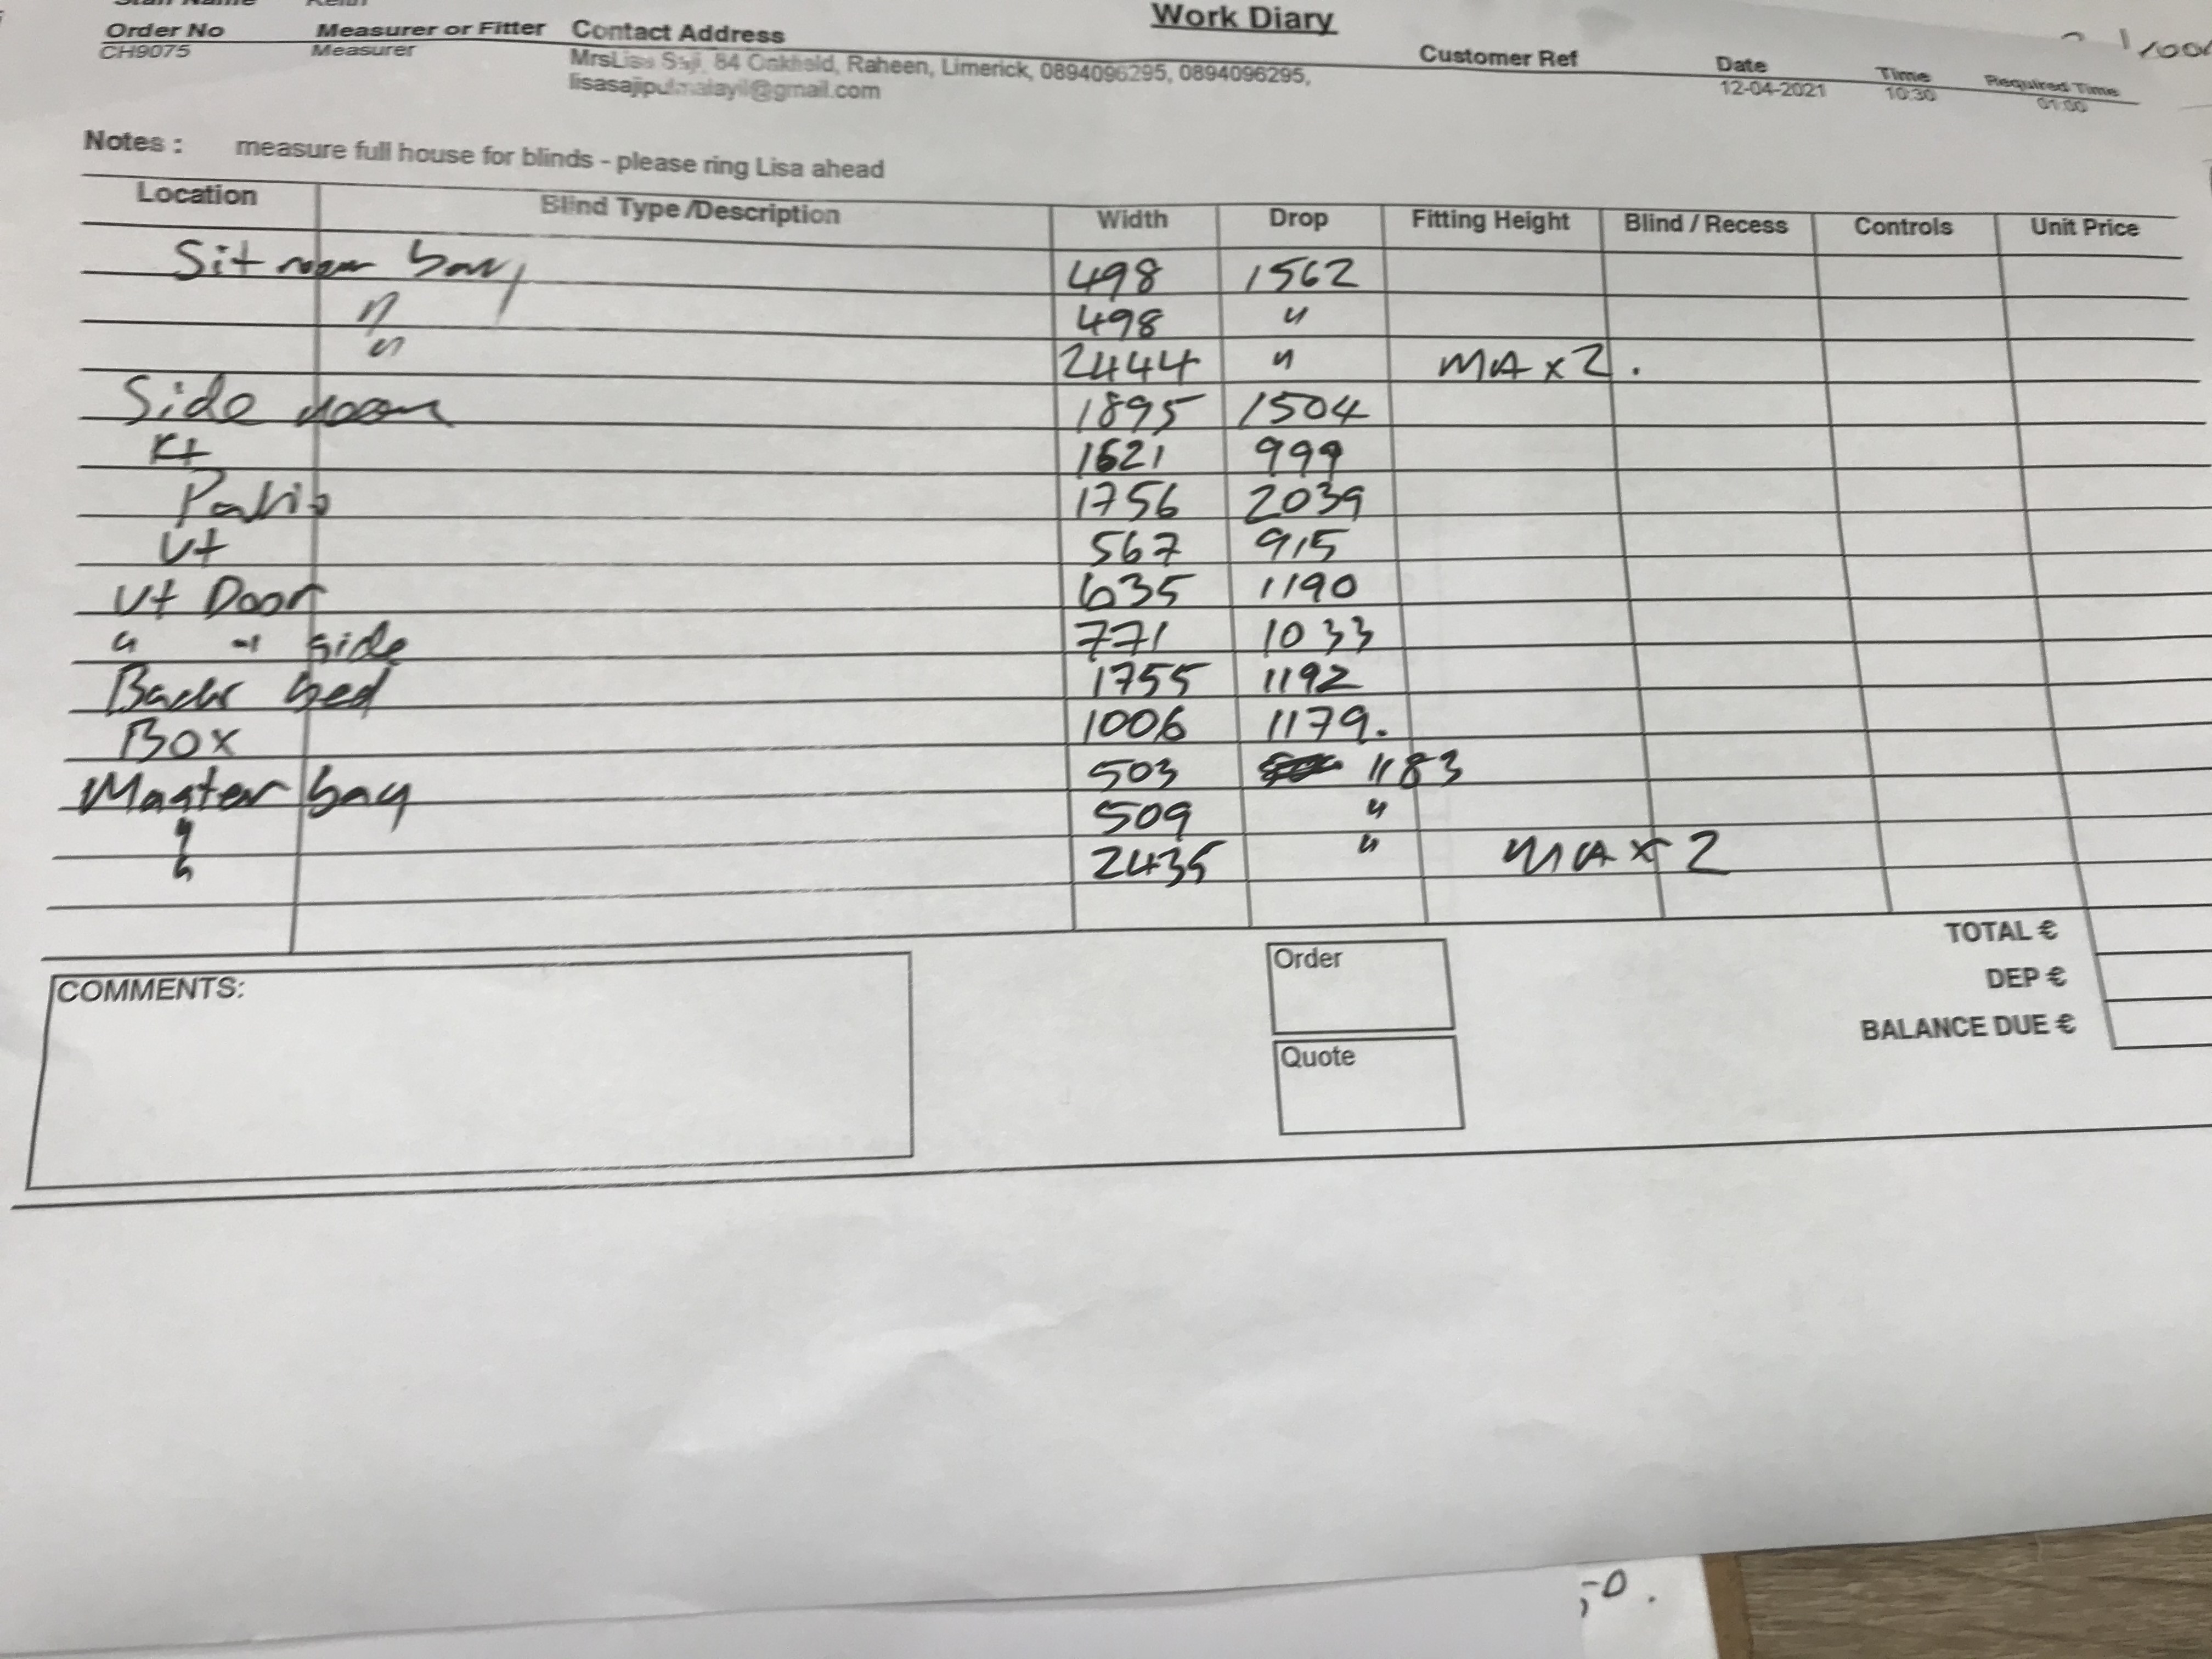 Work Diary
Order No Measurer or Fitter Contact Address Customer Ref Date Time Required Time
CH9075 Measurer MrsLisa Saji, 84 Oakfield, Raheen, Limerick, 0894096295, 0894096295, 12-04-2021 10:30 01:00
Notes : measure full house for blinds - please ring Lisa ahead
Location Blind Type /Description Width Drop Fitting Height Blind / Recess Controls Unit Price
Sit room bay 498 1562
" 498 "
" 2444 " MA x 2.
Side room 1895 1504
Kt 1621 999
Patio 1756 2039
Ut 567 915
Ut Door 635 1190
" " side 771 1033
Back bed 1755 1192
Box 1006 1179.
Master bay 503 1183
" 509 "
" 2435 " MA x 2
TOTAL €
DEP €
BALANCE DUE €
COMMENTS:
Order
Quote